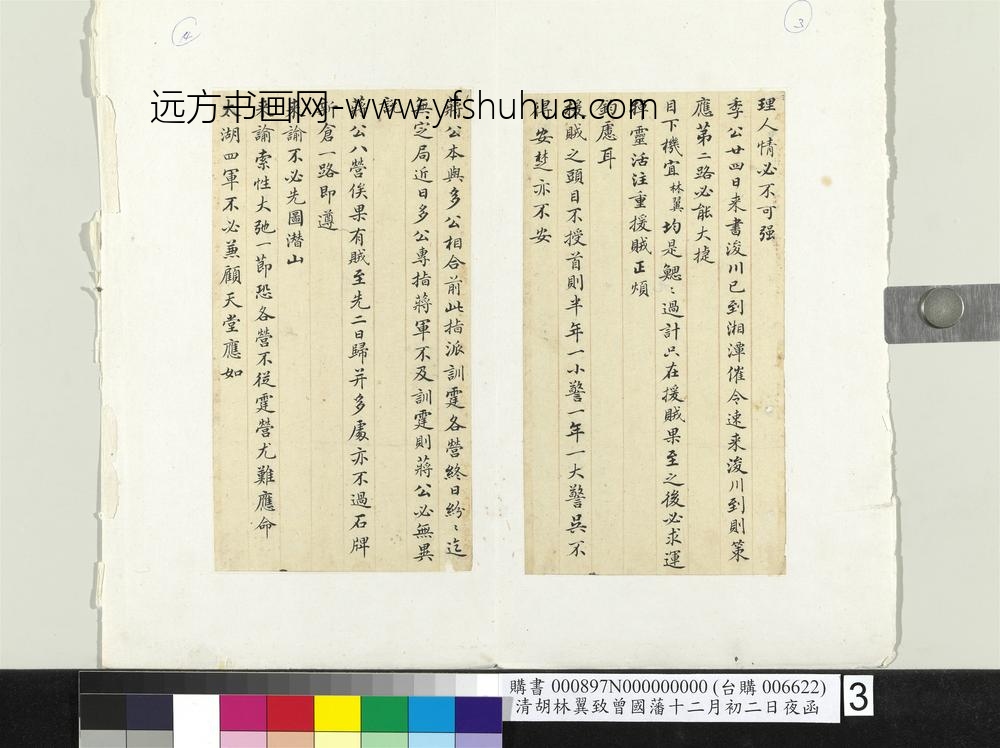 4
3
远方书画网-www.yfshuhua.com
理人情必不可强
季公廿四日来書浚川已到湘潭催令速来浚川到則策
應第二路必能大捷
目下機宜林翼均是鰓〻過計只在援賊果至之後必求運
靈活注重援賊正煩
慮耳
賊之頭目不授首則半年一小警一年一大警吳不
得安楚亦不安
蔣公本與多公相合前此指派訓霆各營終日紛〻迄
無定局近日多公專指蔣軍不及訓霆則蔣公必無異
蔣公八營俟果有賊至先二日歸并多處亦不過石牌
新倉一路即遵
来諭不必先圖潛山
来諭索性大弛一節恐各營不従霆營尤難應命
太湖四軍不必兼顧天堂應如
購書 000897N000000000 (台購 006622)
清胡林翼致曾國藩十二月初二日夜函
3